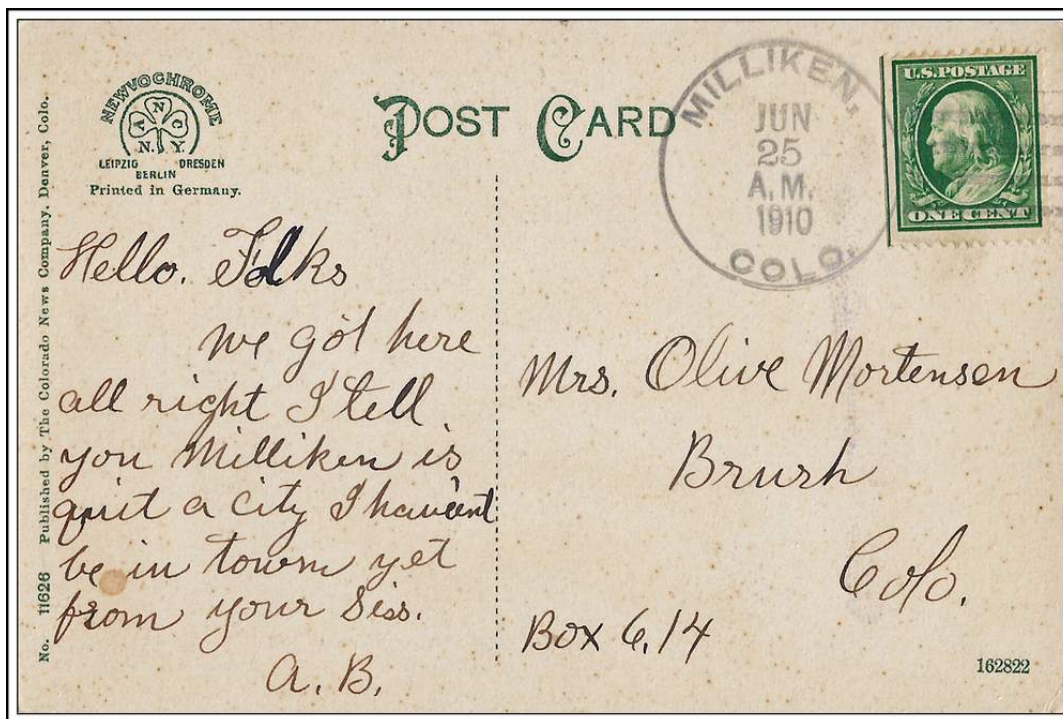 No. 11626 Published by The Colorado News Company, Denver, Colo.
NEWVOCHROME
A N C
N. Y.
LEIPZIG DRESDEN
BERLIN
Printed in Germany.
POST CARD
MILLIKEN,
JUN
25
A.M.
1910
COLO.
U.S. POSTAGE
ONE CENT
Hello. Folks
we got here
all right I tell
you Milliken is
quit a city I have'ent
be in town yet
from your Siss.
A. B.
Mrs. Olive Mortensen
Brush
Colo.
Box 6,14
162822